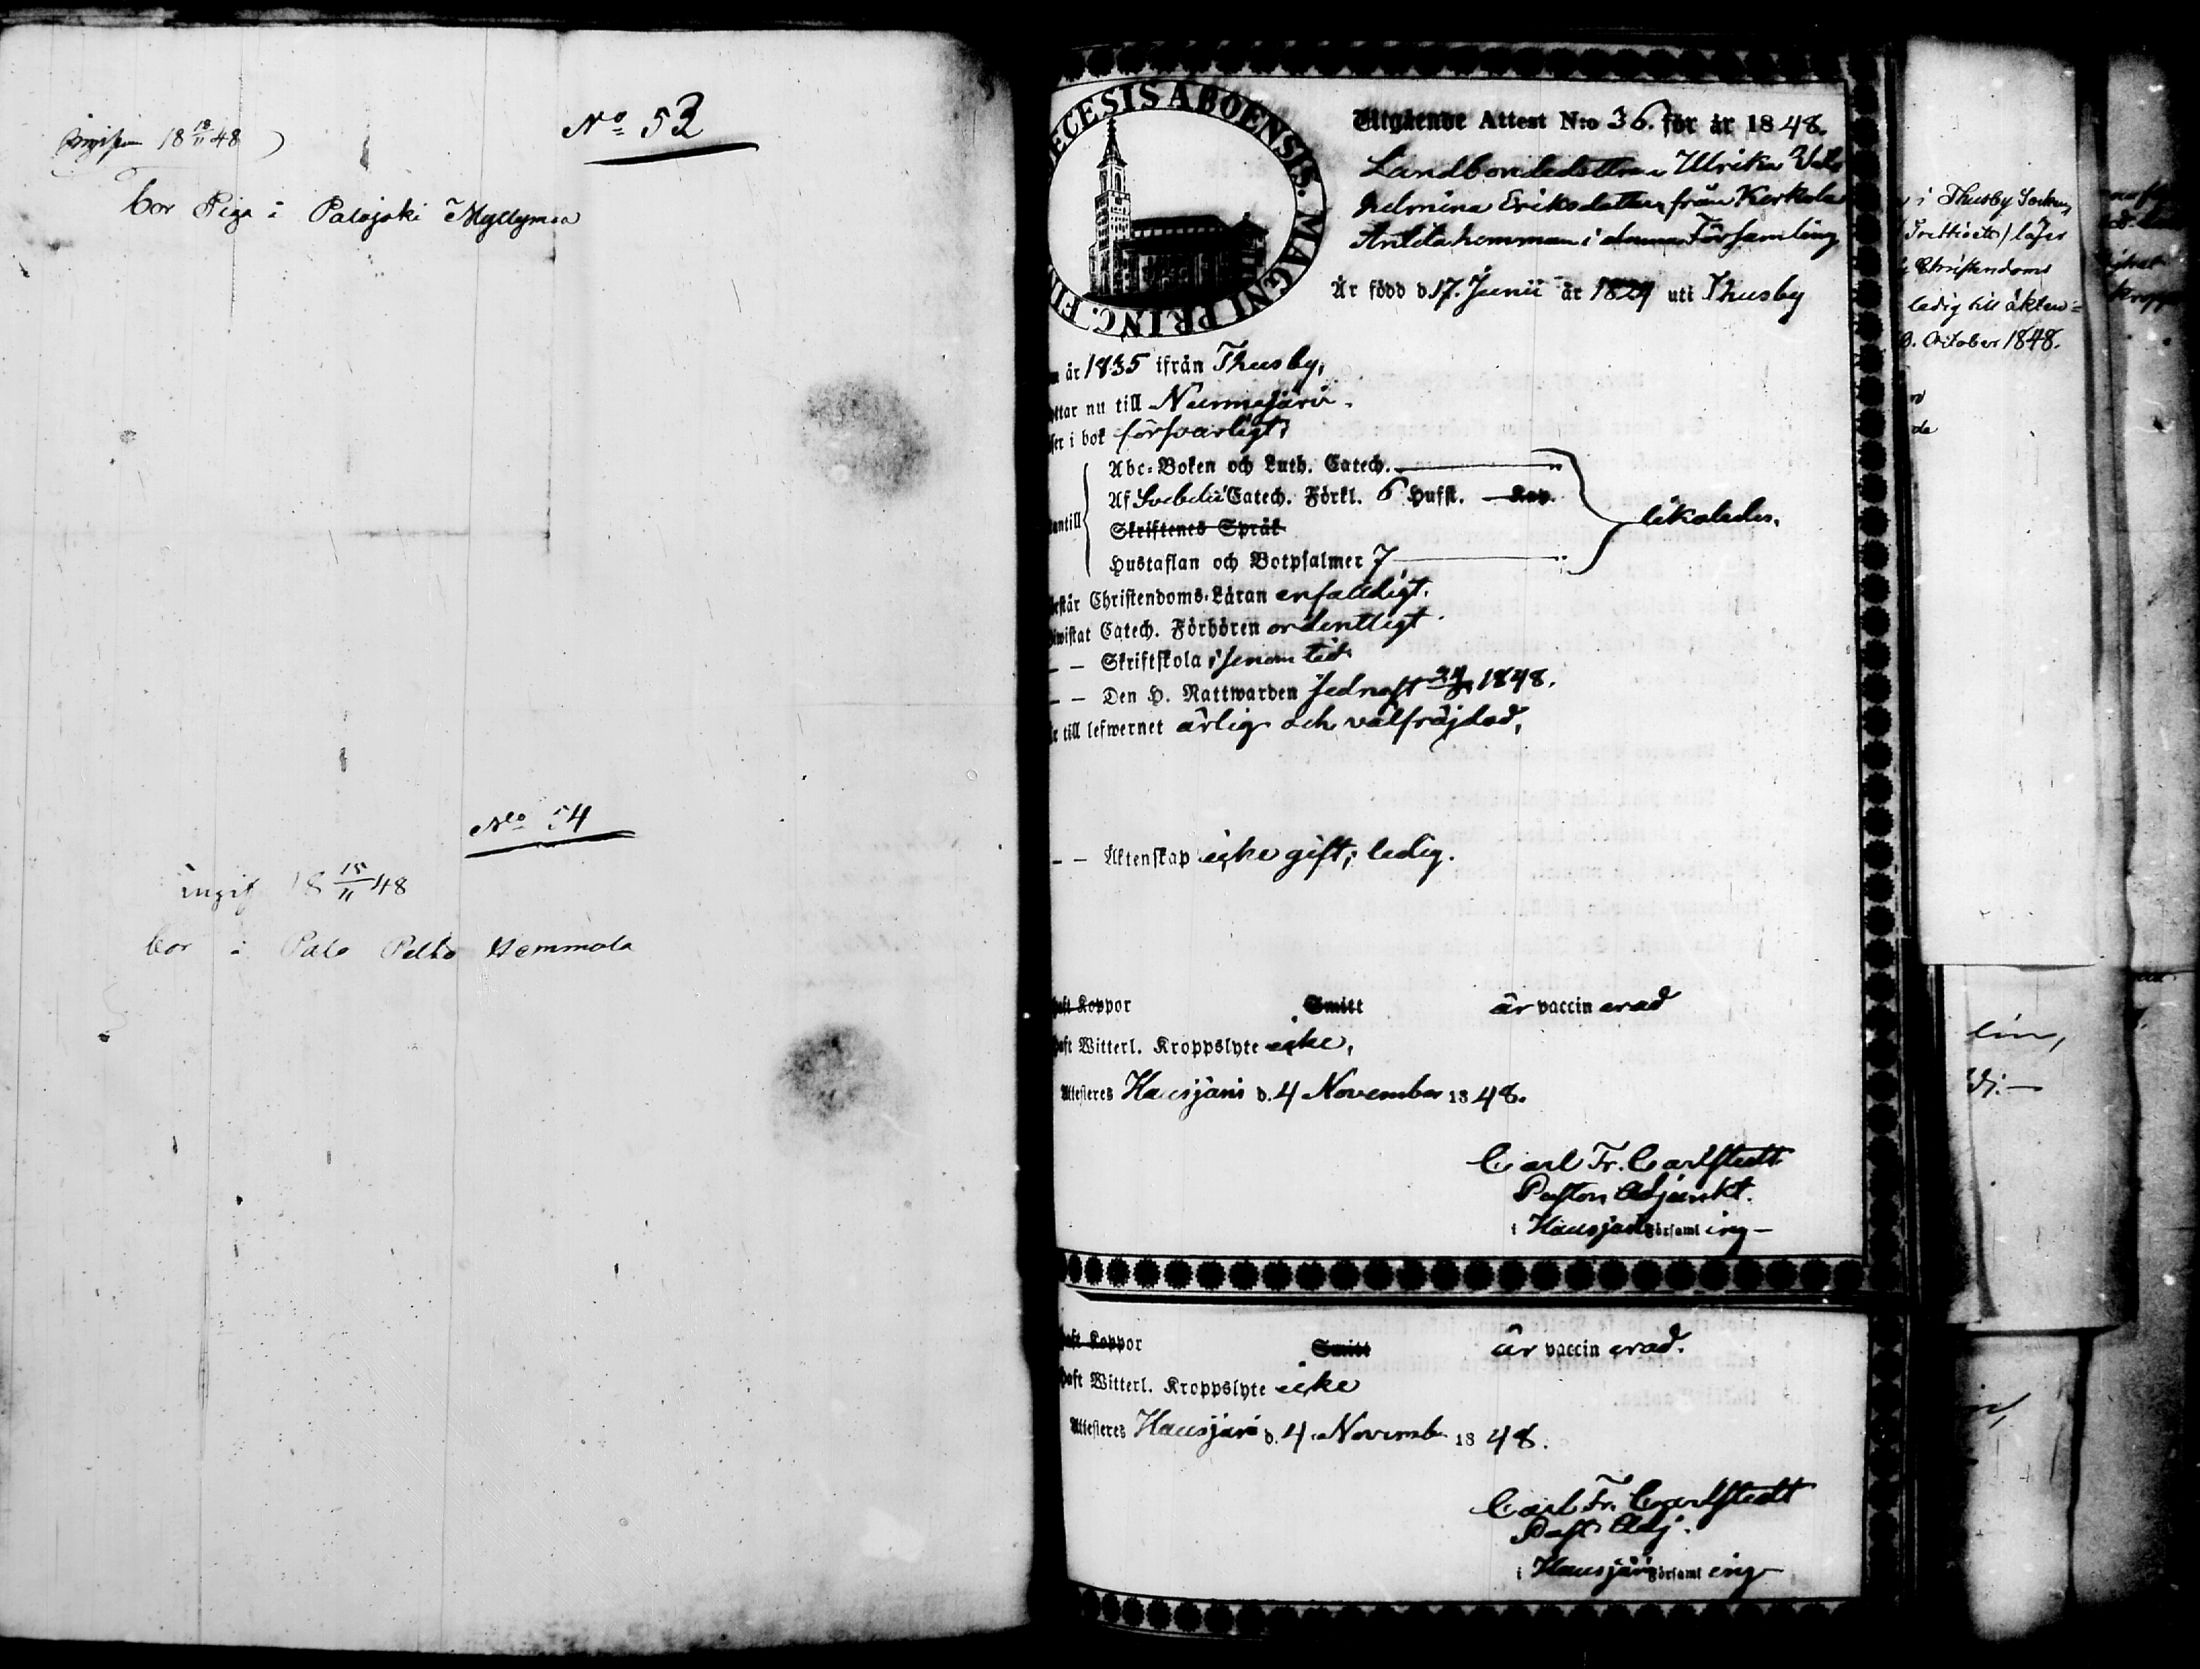 No 53
18 18/11 48
bor Piga i Palojoki Myllymaa
No 54
ingif 18 15/11 48
bor i Palo Pelto Hemmola
ECESIS ABOENSIS. MAGNI PRINC. FI
Utgående Attest N:o 36. för år 1848.
Landbondedottren Ulrika Wil
helmina Eriksdotter från Kerkola
Anttila hemman i denna Församling
Är född d. 17. Junii år 1829 uti Thusby
år 1835 ifrån Thusby,
ttar nu till Nurmejärvi.
ser i bok försvarligt;
Abc-Boken och Luth. Catech. — "
Af Svebelii Catech. Förkl. 6 Hufst. — Kap.
antill
likaledes.
Skriftenes Språk
Hustaflan och Botpsalmer 7 — "
rstår Christendoms-Läran enfaldigt.
iwistat Catech. Förhören ordentligt
— — Skriftskola i sinom tid
— — Den H. Nattwarden sednast 1848.
r till lefwernet ärlig och välfräjdad,
— — Äktenskap icke gift; ledig.
aft Koppor Smitt är vaccin erad
aft Witterl. Kroppslyte icke,
Attesteres Hausjärvi d. 4 November 1848.
Carl Fr. Carlstedt
Pastors Adjunkt.
i Hausjärvi Församl ing —
aft Koppor Smitt är vaccin erad.
haft Witterl. Kroppslyte icke
Attesteres Hausjärvi d. 4 Novemb 1848.
Carl Fr. Carlstedt
Past. Adj.
i Hausjärvi Församl ing
i Thusby Socken,
Trettioett) läser
Christendoms
ledig till äkten=
October 1848.
de
lin,